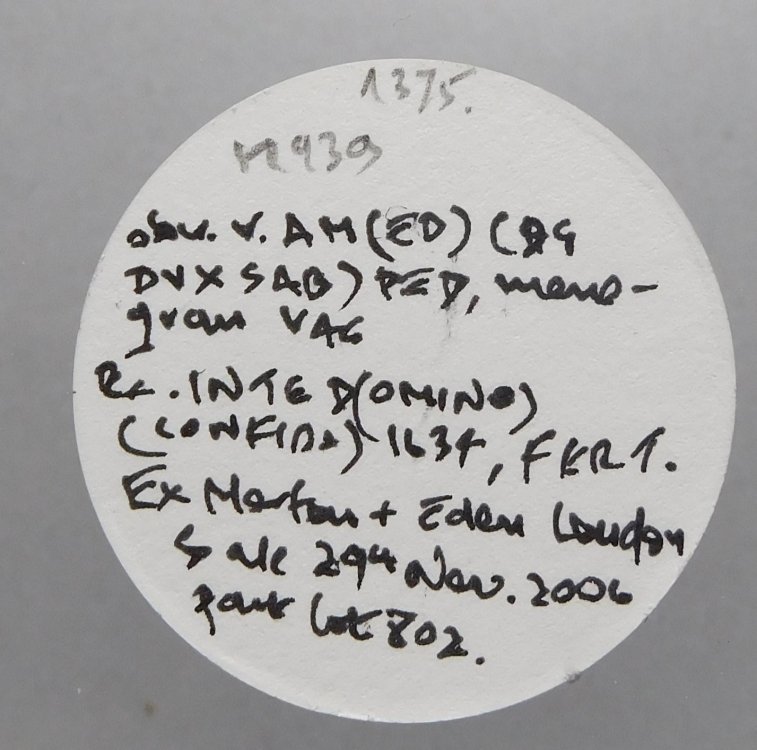 1375.
M939
obv. V. AM(ED) (AG
DVX SAB) PED, mono-
gram VAG
Rx. IN TE D(OMINO)
(CONFIDO) 1634, FERT.
Ex Morton + Eden London
Sale 29th Nov. 2006
part lot 802.